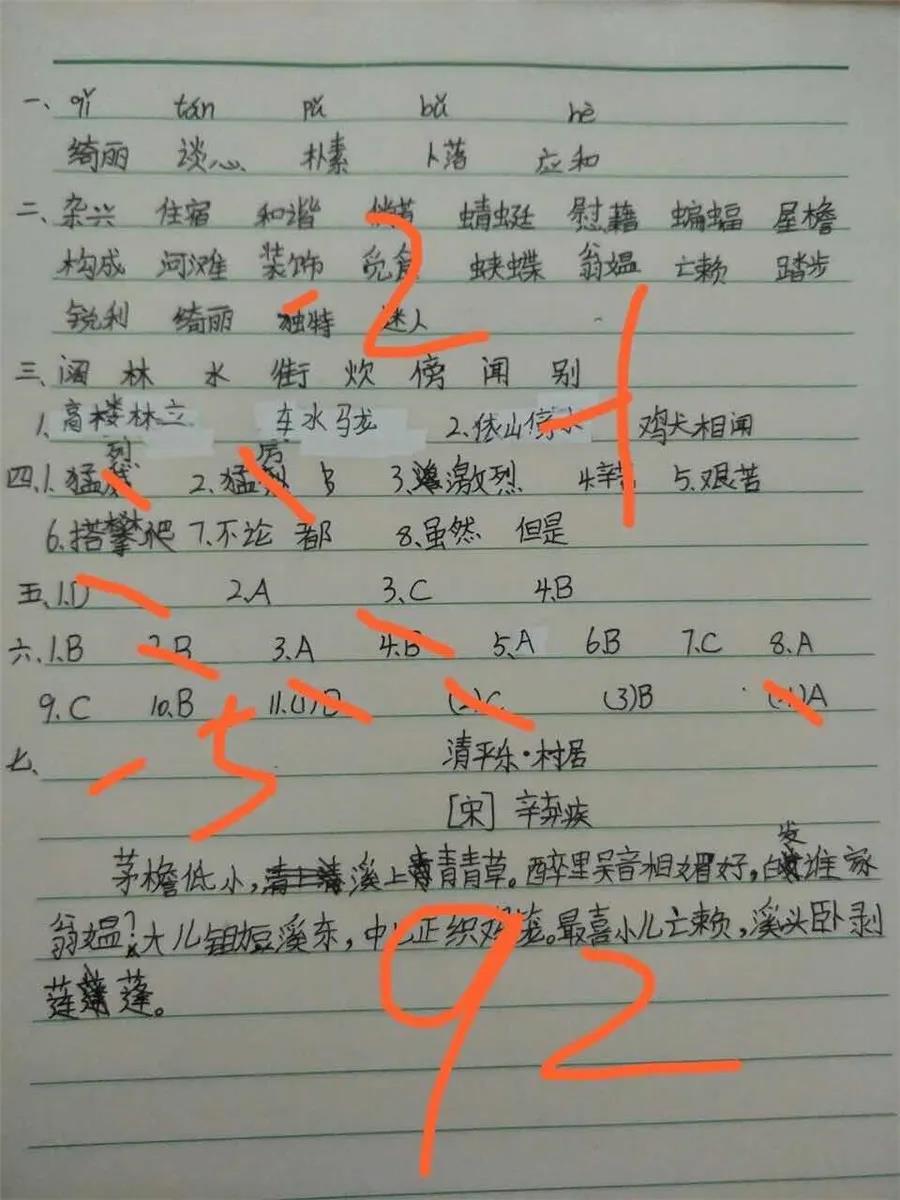 一、 qǐ tán pǔ bǔ hè
绮丽 谈心 朴素 卜落 应和
二、杂兴 住宿 和谐 蜻蜓 慰藉 蝙蝠 屋檐
构成 河滩 装饰 觅食 蛱蝶 翁媪 亡赖 踏步
-2
锐利 绮丽 独特 迷人
三、阔 林 水 街 炊 傍 闻 别
1、高楼林立 车水马龙 2、依山傍水 鸡犬相闻
-1
四、1.猛烈 2.猛厉 3、激烈 4.辛苦 5、艰苦
6、搭攀吧 7、不论 都 8、虽然 但是
五、1.D 2.A 3、C 4.B
六、1.B 2.B 3.A 4.B 5.A 6.B 7.C 8.A
9.C 10.B 11.(1)D (2)C (3)B (4)A
-5
七、 清平乐·村居
[宋] 辛弃疾
茅檐低小，溪上青青草。醉里吴音相媚好，白发谁家
翁媪？大儿锄豆溪东，中儿正织鸡笼。最喜小儿亡赖，溪头卧剥
莲蓬。
92